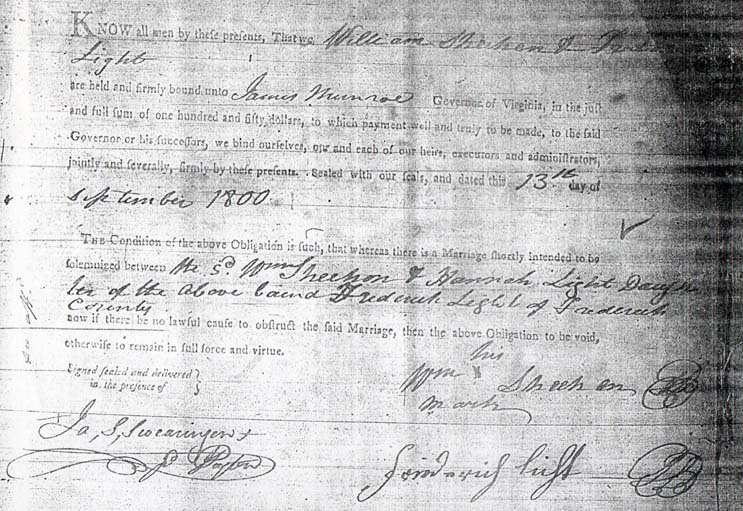 KNOW all men by these presents, That we William Sheehen &
Light
are held and firmly bound unto James Munroe Governor of Virginia, in the just
and full sum of one hundred and fifty dollars, to which payment well and truly to be made, to the said
Governor or his successors, we bind ourselves, our and each of our heirs, executors and administrators,
jointly and severally, firmly by these presents. Sealed with our seals, and dated this 13th day of
September 1800
THE Condition of the above Obligation is such, that whereas there is a Marriage shortly intended to be
solemnized between the sd. Wm Sheehon & Hannah Light Daugh
ter of the above bound Frederick Light of Frederick
County
now if there be no lawful cause to obstruct the said Marriage, then the above Obligation to be void,
otherwise to remain in full force and virtue.
Signed sealed and delivered
in the presence of
his
Wm x Sheehan
mark
Ja, S, Swearingen
Friederich Licht